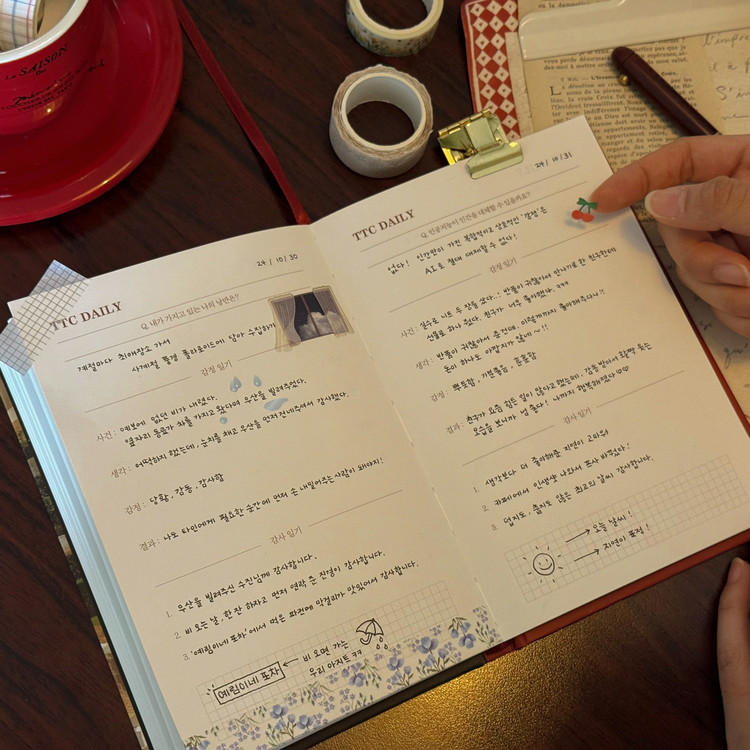 La SAISON
TTC DAILY
24 / 10 / 30
Q. 내가 가지고 있는 나의 낭만은?
계절마다 최애장소 가서
사계절 풍경 폴라로이드에 담아 수집하기
감정 일기
사건 : 예보에 없던 비가 내렸다.
옆자리 동료가 차를 가지고 왔다며 우산을 빌려주었다.
생각 : 어떡하지 했는데, 눈치를 채고 우산을 먼저 건네주셔서 감사했다.
감정 : 당황, 감동, 감사함
결과 : 나도 타인에게 필요한 순간에 먼저 손 내밀어주는 사람이 돼야지!
감사 일기
1. 우산을 빌려주신 수진님께 감사합니다.
2. 비 오는 날, 한 잔 하자고 먼저 연락 준 진경이 감사합니다.
3. '예림이네 포차'에서 먹은 파전에 막걸리가 맛있어서 감사합니다.
예림이네 포차 ← 비 오면 가는
우리 아지트 ㅋㅋ
TTC DAILY
24 / 10 / 31
Q. 인공지능이 인간을 대체할 수 있을까요?
없다! 인간만이 가진 복합적이고 상호적인 '감정'은
AI로 절대 대체할 수 없다!
감정 일기
사건 : 실수로 니트 두 장을 샀다..; 반품이 귀찮아서 만나기로 한 친구한테
선물로 하나 줬다. 친구가 너무 좋아했다. ㅋㅋㅋ
생각 : 반품이 귀찮아서 준 건데, 이렇게까지 좋아해주다니!!
돈이 하나도 아깝지가 않네~!!
감정 : 뿌듯함, 기분좋음, 흐뭇함
결과 : 친구가 요즘 힘든 일이 많다고 했는데, 감동 받아서 활짝 웃는
모습을 보니까 넘 좋다! 나까지 행복해졌다
감사 일기
1. 생각보다 더 좋아해준 지연이 고마워
2. 카페에서 인생샷 나와서 프사 바꿨다!
3. 덥지도, 춥지도 않은 최고의 날씨 감사합니다.
→ 오늘 날씨!
→ 지연이 표정!